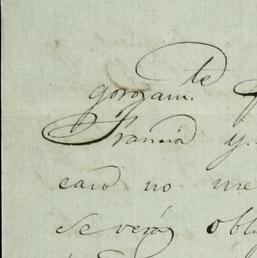 gorozam.te
Francia y
caso no me
se verá obli